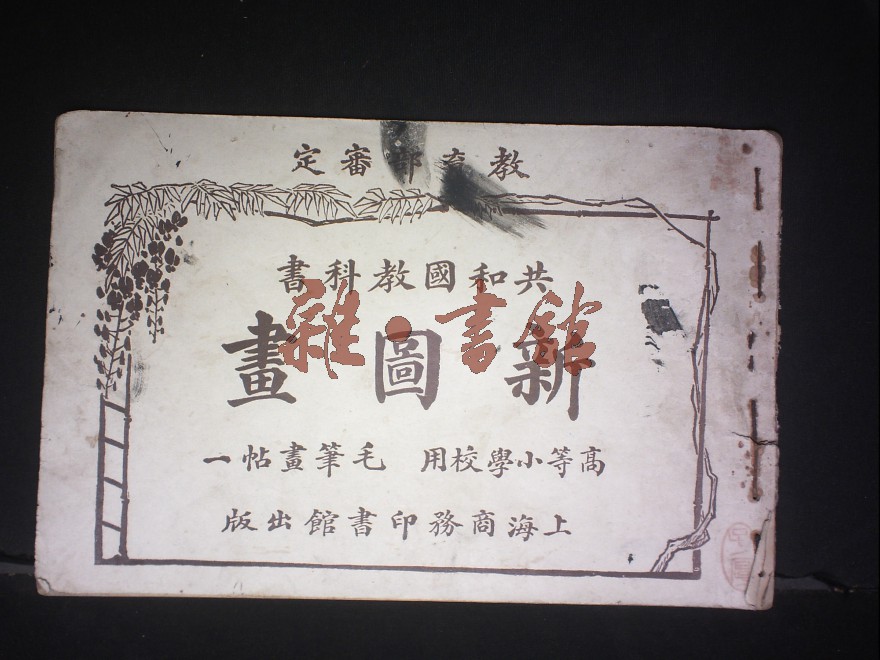 教育部審定
共和國教科書
新圖畫
高等小學校用　毛筆畫帖一
上海商務印書館出版
雜·書館